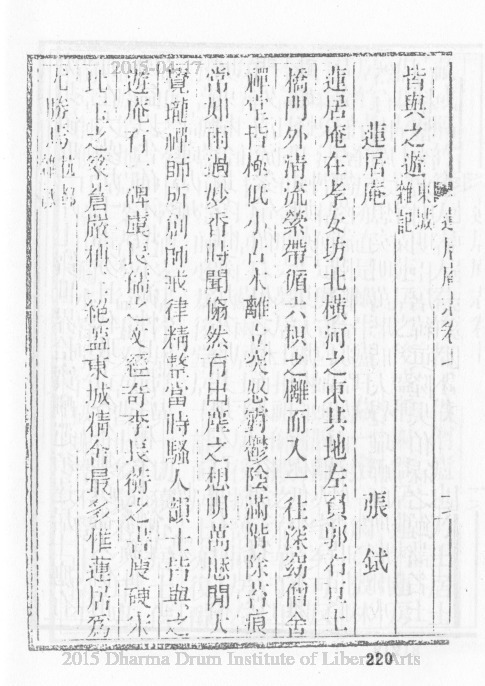 2015-04-17
蓮居庵志卷十
二
皆與之遊東城
雜記
蓮居庵 張鉽
蓮居庵在孝女坊北橫河之東其地左負郭右亘土
橋門外清流縈帶循六枳之籬而入一往深窈僧舍
禪堂皆極低小古木離立突怒窮鬱陰滿階除苔痕
常如雨過妙香時聞翛然有出塵之想明萬歷聞人
寶瓏禪師所創師戒律精整當時騷人韻士皆與之
遊庵有一碑虞長孺之文經奇李長蘅之書瘦硬宋
比玉之篆蒼嚴稱三絕蓋東城精舍最多惟蓮居爲
尤勝焉
220
2015 Dharma Drum Institute of Liberal Arts